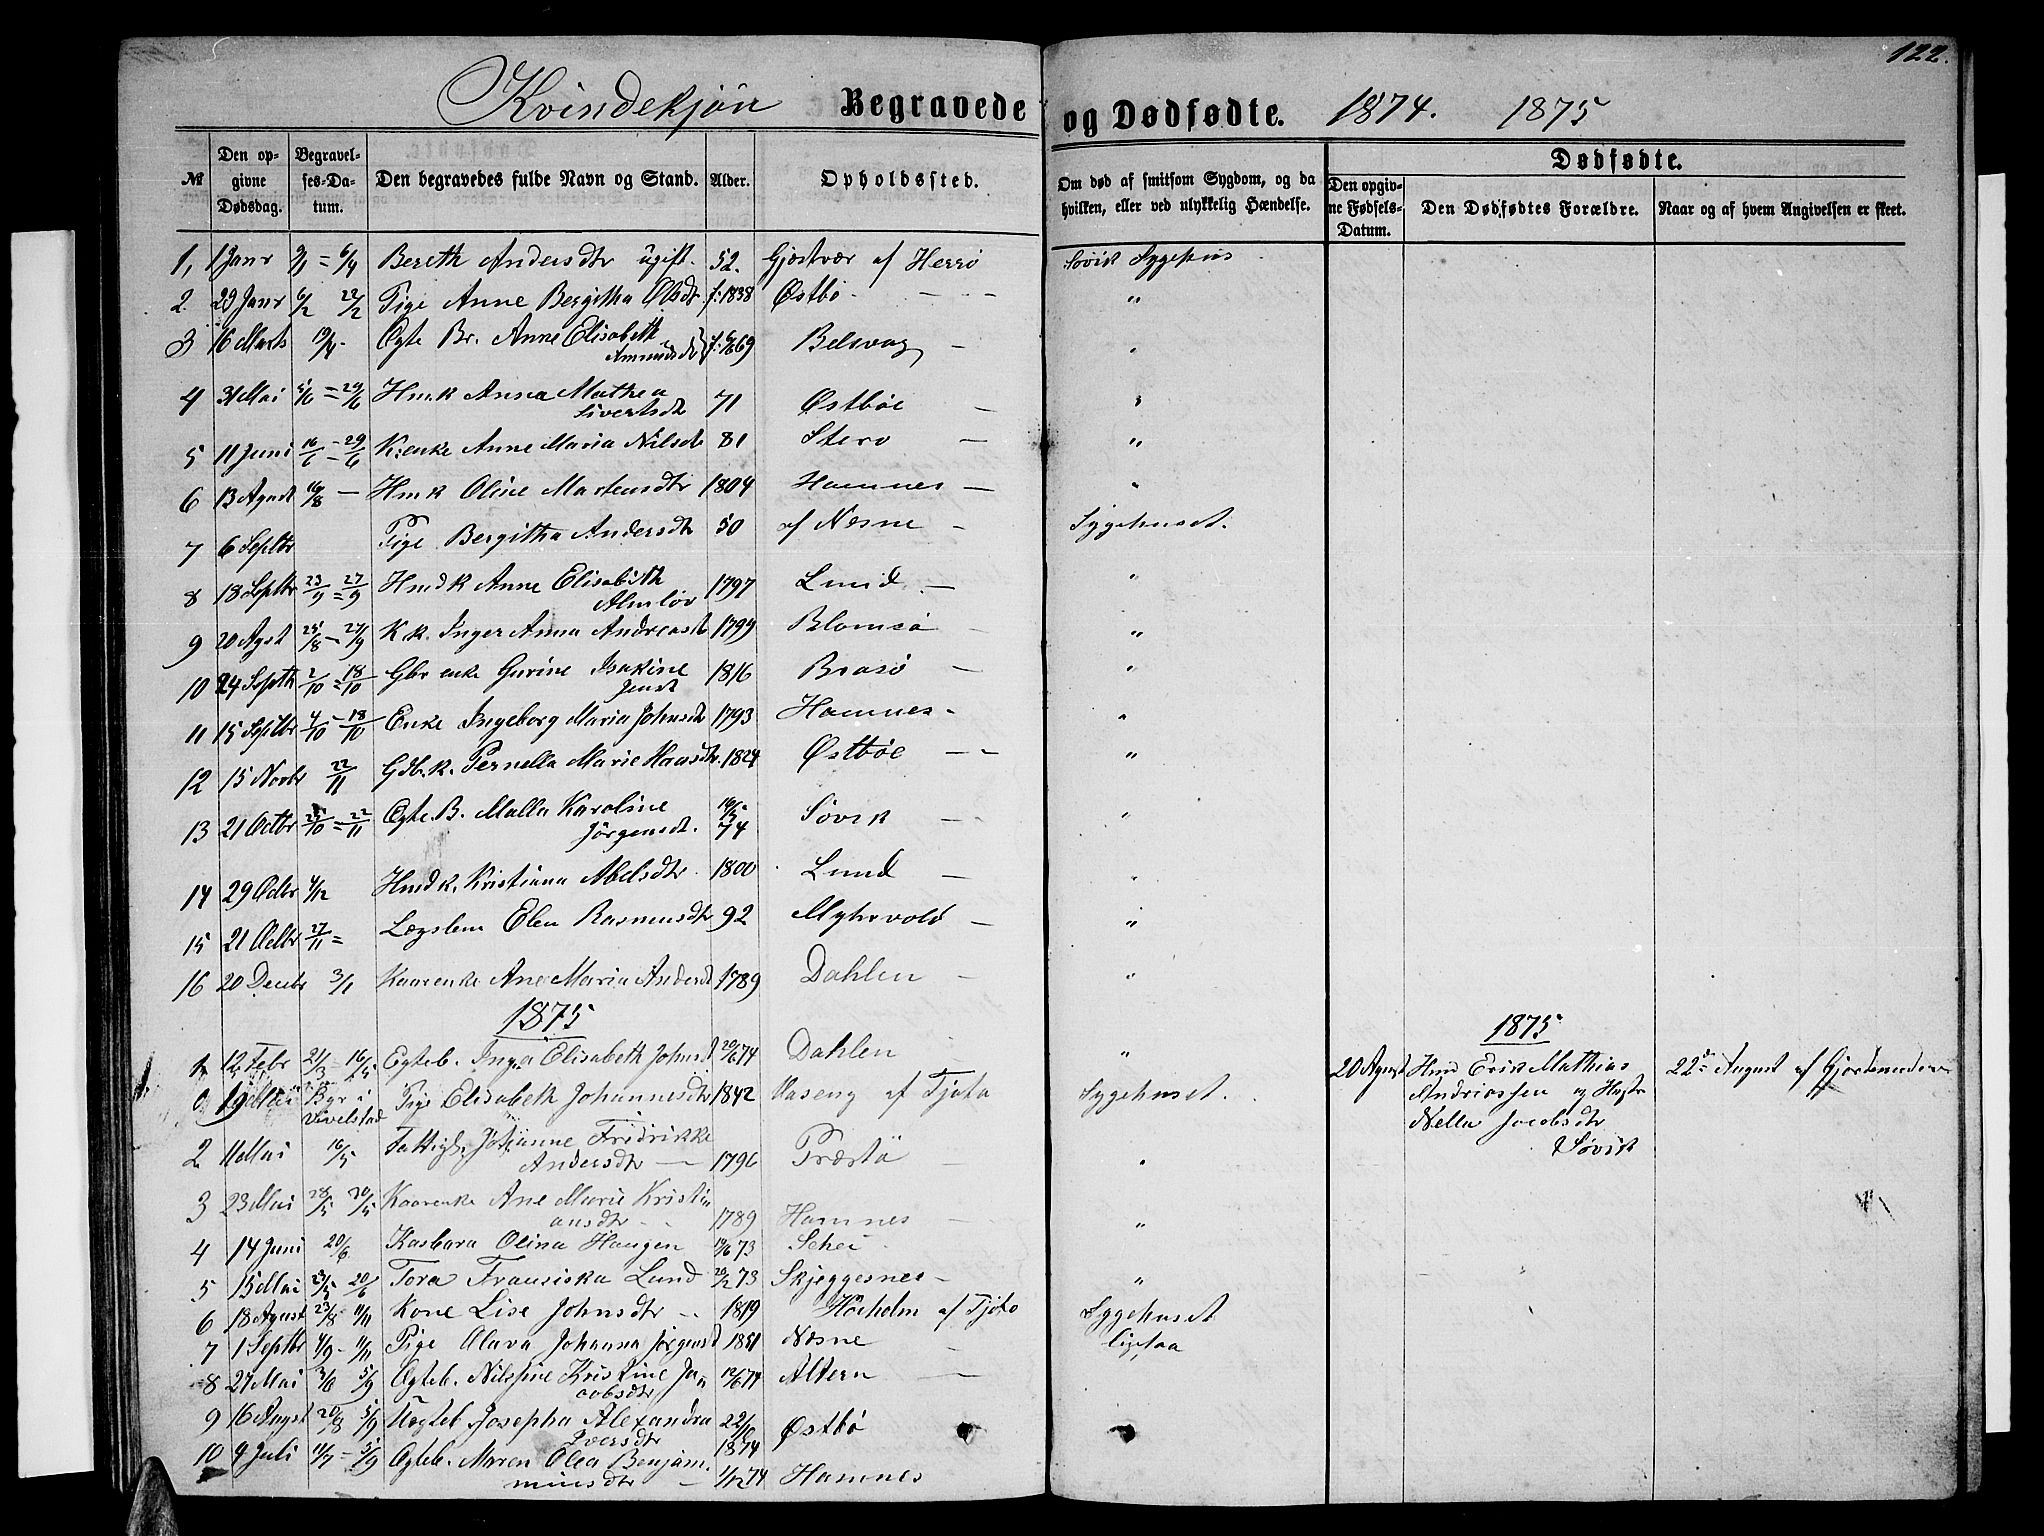 122.
Kvindekjön Begravede og Dødfødte. 1874. 1875
№ Den opgivne Dødsdag. Begravelses-Datum. Den begravedes fulde Navn og Stand. Alder. Opholdssted. Om død af smitsom Sygdom, og da hvilken, eller ved ulykkelig Hændelse. Dødfødte. Den opgivne Fødsels-Datum. Den Dødfødtes Forældre. Naar og af hvem Angivelsen er skeet.
1, 1 Janr 9/1 = 6/4 Bereth Andersdtr ugift. 52. Gjæstvær af Herrö Sövik Sygehus
2. 29 Janr 6/2 22/2 Pige Anne Bergitha Olsdr f: 1838 Østbö - - - "
3 16 Marts 19/4 - Ægte Br. Anne Elisabeth
Amundsdt f: 6/8 69 Belsvag - "
4 31 Mai 5/6 = 29/6 Hmk Anna Mathea
Sivertsdt 71 Østböe - "
5 11 Juni 16/6 - 29/6 K:enke Anne Maria Nilsdt 81 Stero - "
6 13 Agust 16/8 - Hmk Oline Mortensdtr 1804 Hamnes - "
7 6 Septbr Pige Bergitha Andersdt 50 af Nesne - Sygehuset.
8 18 Septbr 23/9 = 27/9 Hmdk Anne Elisabeth
Almlöv 1797 Lund - "
9 20 Agst 25/8 - 27/9 K.k. Inger Anna Andreasdt 1799 Blomsö - "
10 24 Septb 2/10 = 18/10 Gbr enke Gurine Isakine
Jensdt 1816 Brasö - "
11 15 Septbr 4/10 - 18/10 Enke Ingeborg Maria Johnsdt 1793 Hamnes - "
12 15 Novbr 22/11 Gdb.k. Pernella Marie Hansdtr. 1824 Østböe - - "
13 21 Octbr 25/10 = 22/11 Ægte B. Malla Karoline
Jörgensdt. 16/5 74 Sövik - - "
14 29 Octbr 4/12 Hmdk. Kristiana Abelsdtr 1800 Lund - "
15 21 Octbr 27/11 = Lægslem Elen Rasmusdtr 92 Myhrvold - "
16 20 Decbr 3/1 Kaarenke Ane Maria Andersd 1789 Dahlen - "
1875 1875
1 12 Febr 21/3 16/5 Egteb. Inga Elisabeth Johnsd 20/6 74 Dahlen " 20 Agust Hmd Erik Mathias 22de August af Gjordemoderen
0 19 Mai Bgr i Pige Elisabeth Johannesdtr 1842 Haseng af Tjöta Sygehuset. Andriassen og Hustr
Vevelstad Nella Jacobsdtr
Sövik
2 11 Mai 16/5 Fattigl. Johanne Fridrikke
Andersdtr - 1796 Præstö - "
3 23 Mai 28/5 30/5 Kaarenke Ane Marie Kristi
ansdtr - - 1789 Hamnes - "
4 14 Juni 20/6 Kasbara Olina Haugen 19/6 73 Schei
5 15 Mai 23/5 20/6 Tora Fransiska Lund 20/2 73 Skjeggesnes - "
6 18 Agust 23/8 11/11 Kone Lise Johnsdtr - - 1819 Höeholm af Tjöta Sygehuset
7 1 Septbr 4/9 - 11/11 Pige Olava Johanna Jörgensd 1851 Nesne ligesaa
8 27 Mai 3/6 5/9 Ægteb. Nilsine Kristine Ja
cobsdtr 12/6 74 Altern -
9 16 Augst 20/8 5/9 Uægteb Josepha Alexandra
Iversdtr 22/10 1874 Østbö
10 4 Juli 11/7 - 5/9 Ægteb. Maren Olea Benjam
minsdtr - 1/12 74 Hamnes